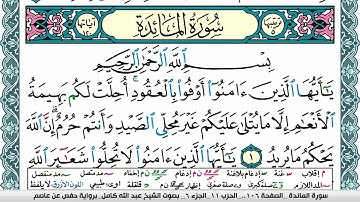 سُورَةُ المَائِدَةِ
بِسْمِ ٱللَّهِ ٱلرَّحْمَٰنِ ٱلرَّحِيمِ
يَٰٓأَيُّهَا ٱلَّذِينَ ءَامَنُوٓا۟ أَوْفُوا۟ بِٱلْعُقُودِ ۚ أُحِلَّتْ لَكُم بَهِيمَةُ
ٱلْأَنْعَٰمِ إِلَّا مَا يُتْلَىٰ عَلَيْكُمْ غَيْرَ مُحِلِّى ٱلصَّيْدِ وَأَنتُمْ حُرُمٌ ۗ إِنَّ ٱللَّهَ
يَحْكُمُ مَا يُرِيدُ ١ يَٰٓأَيُّهَا ٱلَّذِينَ ءَامَنُوا۟ لَا تُحِلُّوا۟ شَعَٰٓئِرَ ٱللَّهِ
سورة المائدة . الصفحة ١٠٦... الحزب ١١ .الجزء ٦ . بصوت الشيخ عبد الله كامل . برواية حفص عن عاصم